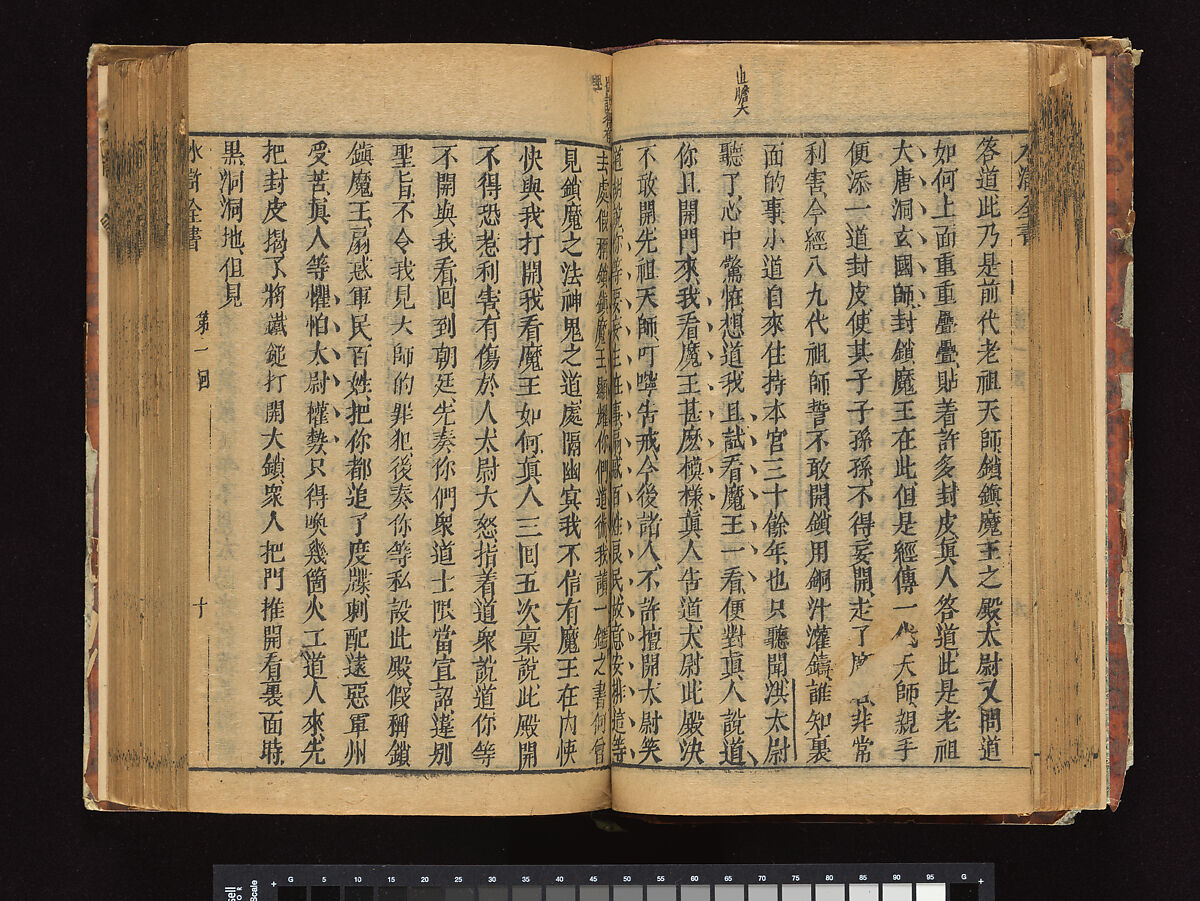 膽大
答道此乃是前代老祖天師鎖鎮魔王之殿太尉又問道
如何上面重重疊疊貼着許多封皮眞人答道此是老祖
大唐洞玄國師封鎖魔王在此但是經傳一代天師親手
便添一道封皮使其子子孫孫不得妄開走了非常
利害今經八九代祖師誓不敢開鎖用銅汁灌鑄誰知裏
面的事小道自來住持本宮三十餘年也只聽聞洪太尉
聽了心中驚恠想道我且試看魔王一看便對眞人說道
你且開門來我看魔王甚麽模樣眞人告道太尉此殿決
不敢開先祖天師叮嚀告戒今後諸人不許擅開太尉笑
道胡說你等要妄生事扇惑百姓良民故意安排這等
去處假稱鎖鎮魔王顯耀你們道術我讀一鑑之書何曾
見鎖魔之法神鬼之道處隔幽冥我不信有魔王在内快
快與我打開我看魔王如何眞人三回五次禀說此殿開
不得恐惹利害有傷於人太尉大怒指着道衆說道你等
不開與我看回到朝廷先奏你們衆道士阻當宣詔違別
聖旨不令我見大師的罪犯後奏你等私設此殿假稱鎖
鎮魔王扇惑軍民百姓把你都追了度牒刺配遠惡軍州
受苦眞人等懼怕太尉權勢只得喚幾箇火工道人來先
把封皮揭了將鐵鎚打開大鎖衆人把門推開看裏面時
黑洞洞地但見
水滸全書　第一回　十